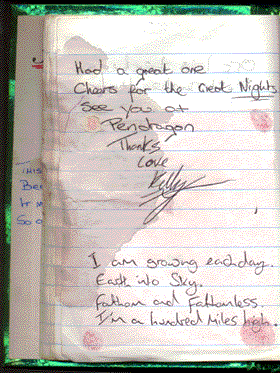 Had a great one
Cheers for the Great Nights
See you at
Pendragon
Thanks
Love
Kelly
I am growing each day.
Earth into Sky.
Fathom and Fathomless.
I'm a hundred miles high.
THIS
Be
It
So